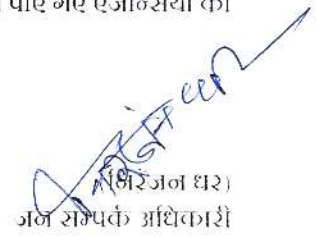 पाए गए एजेन्सियों को
(निरंजन धर)
जन सम्पर्क अधिकारी